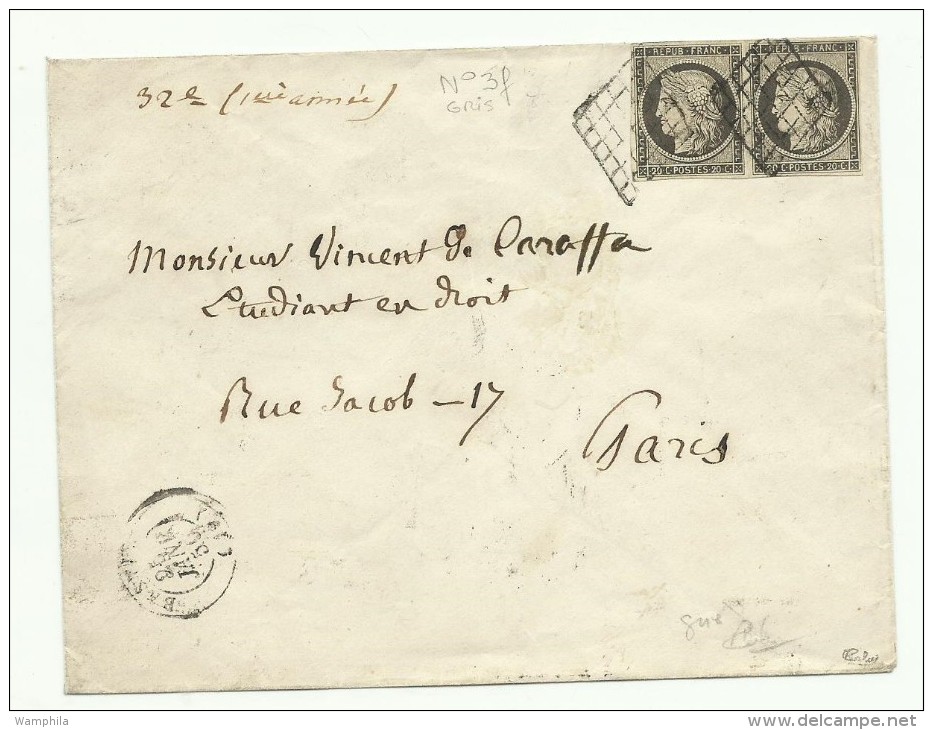 32e (1ère année)
N° 3f
GRIS
REPUB · FRANC · REPUB · FRANC ·
20 · C · POSTES · 20 · C · 20 · C · POSTES · 20 · C ·
Monsieur Vincent de Caraffa
Etudiant en droit
Rue Jacob - 17
Paris
BASTIA
JANV
50
gris
Wamphila
www.delcampe.net